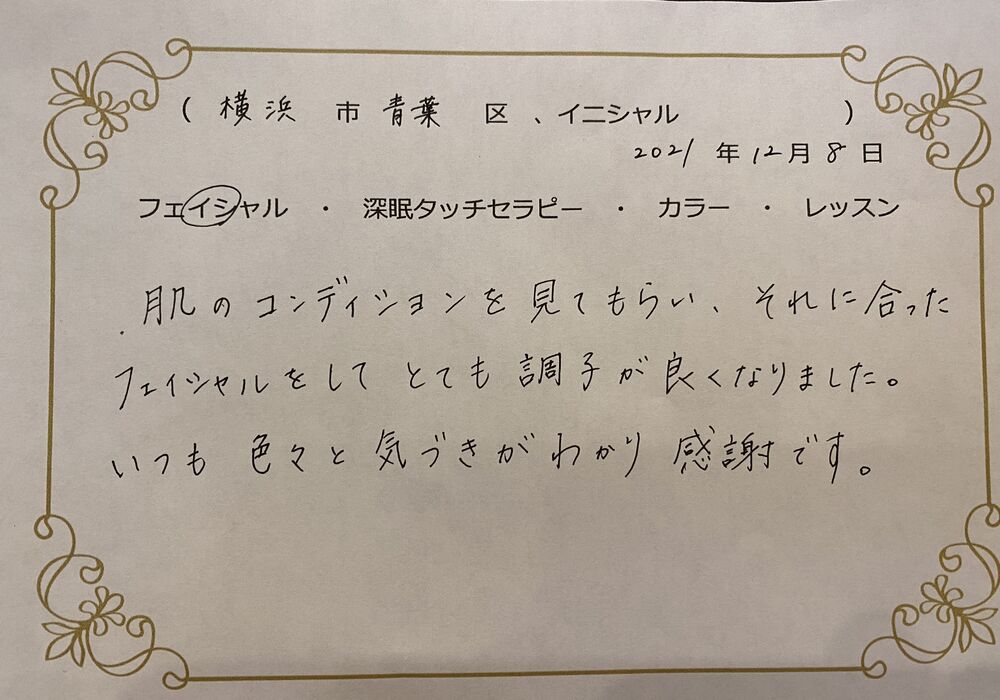 ( 横浜 市 青葉 区 、イニシャル )
2021 年 12 月 8 日
フェイシャル ・ 深眠タッチセラピー ・ カラー ・ レッスン
肌のコンディションを見てもらい、それに合った
フェイシャルをして とても 調子が良くなりました。
いつも 色々と 気づきがわかり 感謝です。